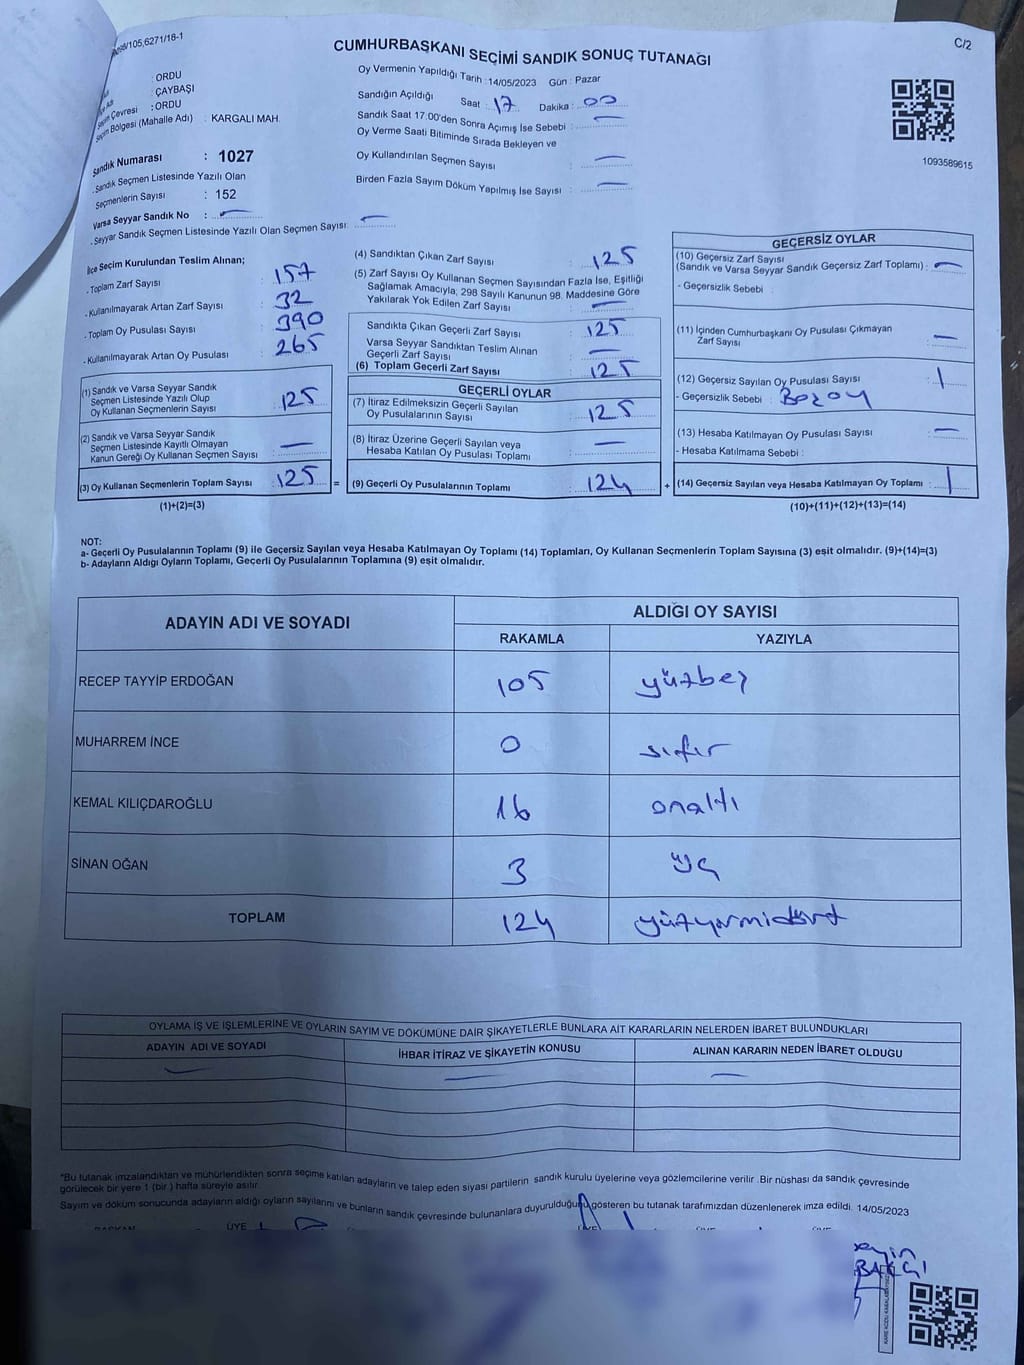 098/105,6271/18-1
C/2
CUMHURBAŞKANI SEÇİMİ SANDIK SONUÇ TUTANAĞI
: ORDU
: ÇAYBAŞI
Seçim Çevresi : ORDU
Seçim Bölgesi (Mahalle Adı) : KARGALI MAH.
Sandık Numarası : 1027
Sandık Seçmen Listesinde Yazılı Olan
Seçmenlerin Sayısı : 152
Varsa Seyyar Sandık No : —
Seyyar Sandık Seçmen Listesinde Yazılı Olan Seçmen Sayısı: —
Oy Vermenin Yapıldığı Tarih : 14/05/2023 Gün : Pazar
Sandığın Açıldığı Saat : 17 Dakika : 00
Sandık Saat 17.00'den Sonra Açımış İse Sebebi : —
Oy Verme Saati Bitiminde Sırada Bekleyen ve
Oy Kullandırılan Seçmen Sayısı : —
Birden Fazla Sayım Döküm Yapılmış İse Sayısı : —
1093589615
İlçe Seçim Kurulundan Teslim Alınan;
. Toplam Zarf Sayısı : 157
. Kullanılmayarak Artan Zarf Sayısı : 32
. Toplam Oy Pusulası Sayısı : 390
. Kullanılmayarak Artan Oy Pusulası : 265
(1) Sandık ve Varsa Seyyar Sandık
Seçmen Listesinde Yazılı Olup
Oy Kullanan Seçmenlerin Sayısı : 125
(2) Sandık ve Varsa Seyyar Sandık
Seçmen Listesinde Kayıtlı Olmayan
Kanun Gereği Oy Kullanan Seçmen Sayısı : —
(3) Oy Kullanan Seçmenlerin Toplam Sayısı : 125 =
(1)+(2)=(3)
(4) Sandıktan Çıkan Zarf Sayısı : 125
(5) Zarf Sayısı Oy Kullanan Seçmen Sayısından Fazla İse, Eşitliği
Sağlamak Amacıyla; 298 Sayılı Kanunun 98. Maddesine Göre
Yakılarak Yok Edilen Zarf Sayısı : —
Sandıkta Çıkan Geçerli Zarf Sayısı : 125
Varsa Seyyar Sandıktan Teslim Alınan
Geçerli Zarf Sayısı : —
(6) Toplam Geçerli Zarf Sayısı : 125
GEÇERLİ OYLAR
(7) İtiraz Edilmeksizin Geçerli Sayılan
Oy Pusulalarının Sayısı : 125
(8) İtiraz Üzerine Geçerli Sayılan veya
Hesaba Katılan Oy Pusulası Toplamı : —
(9) Geçerli Oy Pusulalarının Toplamı : 124 +
GEÇERSİZ OYLAR
(10) Geçersiz Zarf Sayısı
(Sandık ve Varsa Seyyar Sandık Geçersiz Zarf Toplamı) : —
- Geçersizlik Sebebi :
(11) İçinden Cumhurbaşkanı Oy Pusulası Çıkmayan
Zarf Sayısı : —
(12) Geçersiz Sayılan Oy Pusulası Sayısı : 1
- Geçersizlik Sebebi :
(13) Hesaba Katılmayan Oy Pusulası Sayısı : —
- Hesaba Katılmama Sebebi :
(14) Geçersiz Sayılan veya Hesaba Katılmayan Oy Toplamı : 1
(10)+(11)+(12)+(13)=(14)
NOT:
a- Geçerli Oy Pusulalarının Toplamı (9) ile Geçersiz Sayılan veya Hesaba Katılmayan Oy Toplamı (14) Toplamları, Oy Kullanan Seçmenlerin Toplam Sayısına (3) eşit olmalıdır. (9)+(14)=(3)
b- Adayların Aldığı Oyların Toplamı, Geçerli Oy Pusulalarının Toplamına (9) eşit olmalıdır.
ADAYIN ADI VE SOYADI
ALDIĞI OY SAYISI
RAKAMLA YAZIYLA
RECEP TAYYİP ERDOĞAN 105 yüzbeş
MUHARREM İNCE 0 sıfır
KEMAL KILIÇDAROĞLU 16 onaltı
SİNAN OĞAN 3 üç
TOPLAM 124 yüzyirmidört
OYLAMA İŞ VE İŞLEMLERİNE VE OYLARIN SAYIM VE DÖKÜMÜNE DAİR ŞİKAYETLERLE BUNLARA AİT KARARLARIN NELERDEN İBARET BULUNDUKLARI
ADAYIN ADI VE SOYADI İHBAR İTİRAZ VE ŞİKAYETİN KONUSU ALINAN KARARIN NEDEN İBARET OLDUĞU
— — —
*Bu tutanak imzalandıktan ve mühürlendikten sonra seçime katılan adayların ve talep eden siyasi partilerin sandık kurulu üyelerine veya gözlemcilerine verilir .Bir nüshası da sandık çevresinde
görülecek bir yere 1 (bir ) hafta süreyle asılır.
Sayım ve döküm sonucunda adayların aldığı oyların sayılarını ve bunların sandık çevresinde bulunanlara duyurulduğunu gösteren bu tutanak tarafımızdan düzenlenerek imza edildi. 14/05/2023
BAŞKAN ÜYE ÜYE ÜYE ÜYE